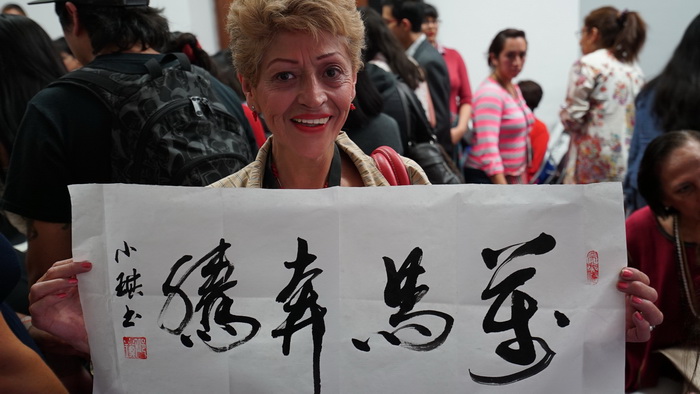 萬馬奔騰
小琪书